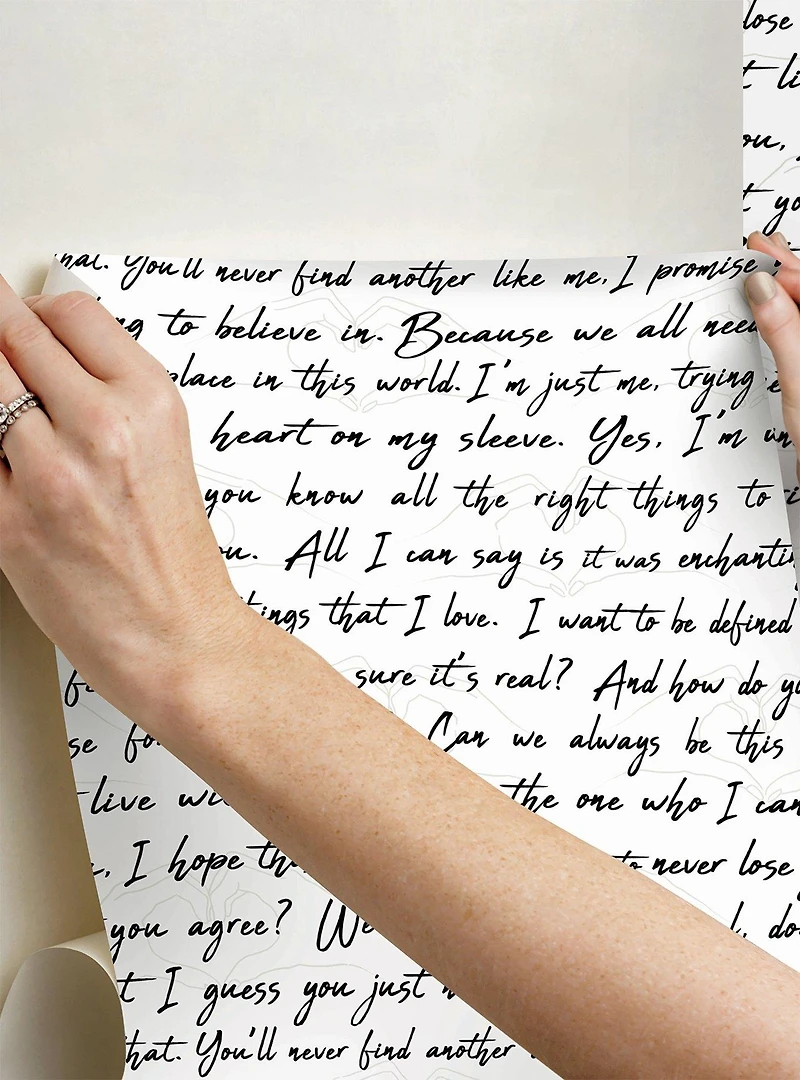 lose
t li
ou,
t yo
You'll never find another like me, I promise
ng to believe in. Because we all need
place in this world. I'm just me, trying
heart on my sleeve. Yes, I'm un
you know all the right things to
ou. All I can say is it was enchantin
things that I love. I want to be defined
sure it's real? And how do yo
se fo Can we always be this
live wi the one who I can
I hope th to never lose
you agree? We do
t I guess you just
that. You'll never find another